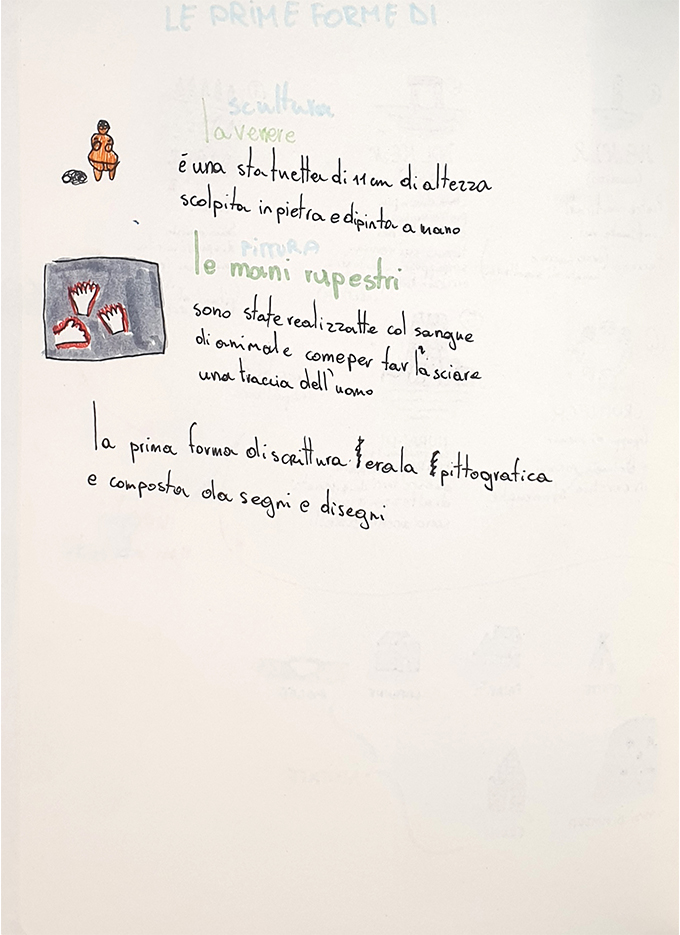 LE PRIME FORME DI
scultura
la venere
é una statuetta di 11 cm di altezza
scolpita in pietra e dipinta a mano
PITTURA
le mani rupestri
sono state realizzatte col sangue
di animale come per far la sciare
una traccia dell'uomo
la prima forma di scrittura era la pittografica
e composta da segni e disegni